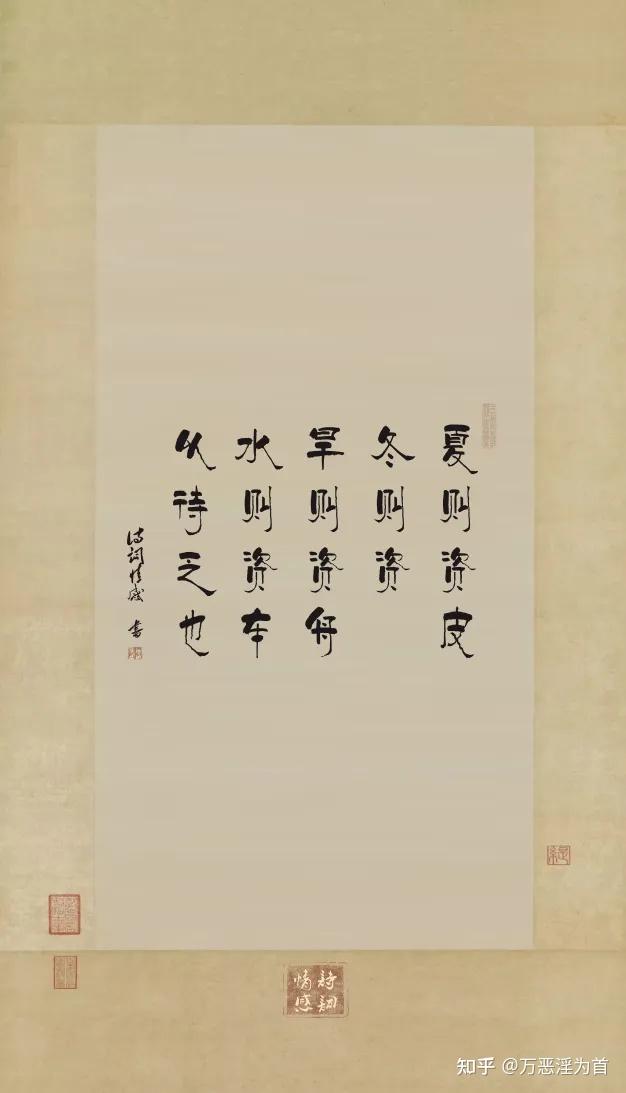 夏则资皮
冬则资
旱则资舟
水则资车
以待乏也
诗词情感 书
詩詞
情感
知乎 @万恶淫为首